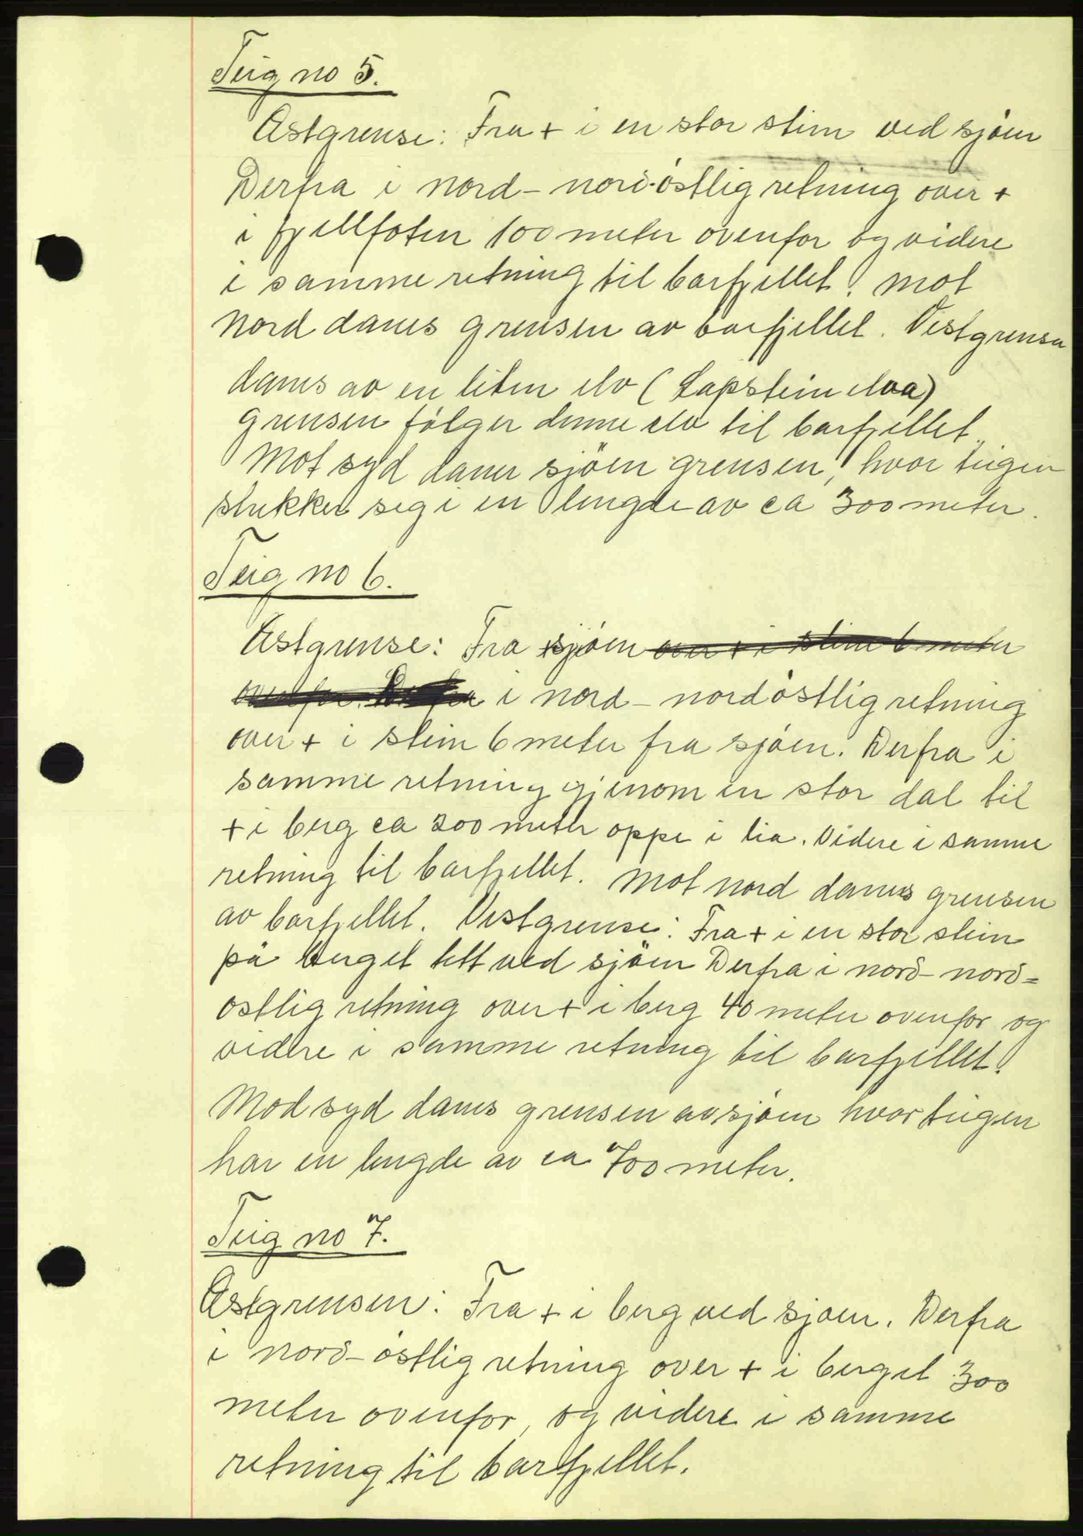 Teig no 5.
Østgrense: Fra + i en stor stein ved sjöen
Derfra i nord-nord-östlig retning over +
i fjellfoten 100 meter ovenfor og videre
i samme retning til barfjellet. Mot
Nord danes grensen av barfjellet. Vestgrensen
danes av en liten elv (Lapstein elva)
grensen fölger denne elv til barfjellet
Mot syd daner sjöen grensen, hvor teigen
strekker seg i en lengde av ca 300 meter.
Teig no 6.
Østgrense: Fra sjöen over + i stein 6 meter
ovenfor. Derfra i nord-nordöstlig retning
over + i stein 6 meter fra sjöen. Derfra i
samme retning gjenom en stor dal til
+ i berg ca 200 meter oppe i lia. Videre i samme
retning til barfjellet. Mot nord danes grensen
av barfjellet. Vestgrense: Fra + i en stor stein
på berget tett ved sjöen Derfra i nord-nord=
ostlig retning over + i berg 40 meter ovenfor og
videre i samme retning til barfjellet.
Mod syd danes grensen av sjöen hvor teigen
har en lengde av ca 700 meter.
Teig no 7.
Østgrensen: Fra + i berg ved sjoen. Derfra
i nord-östlig retning over + i berget 300
meter ovenfor, og videre i samme
retning til barfjellet.